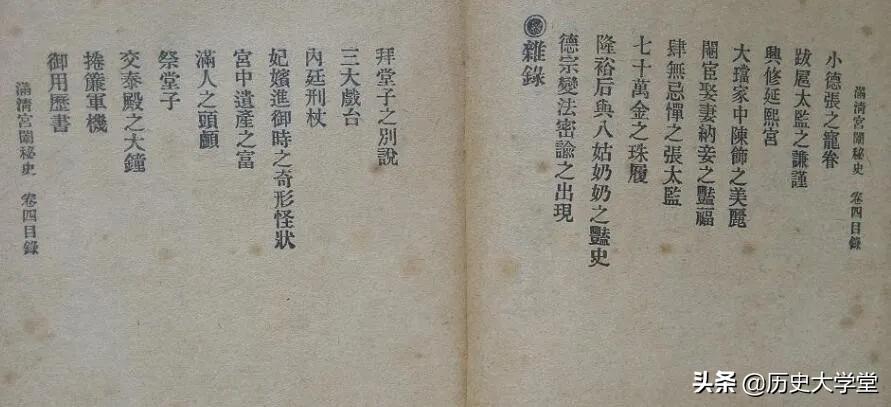 滿清宮闈秘史 卷四目錄
小德張之寵眷
跋扈太監之謙謹
興修延熙宮
大璫家中陳飾之美麗
閹宦娶妻納妾之豔福
肆無忌憚之張太監
七十萬金之珠履
隆裕后與八姑奶奶之豔史
德宗變法密諭之出現
雜錄
拜堂子之別說
三大戲台
內廷刑杖
妃嬪進御時之奇形怪狀
宮中遺產之富
滿人之頭顱
祭堂子
交泰殿之大鐘
捲簾軍機
御用歷書
滿清宮闈秘史 卷四目錄
头条 @历史大学堂